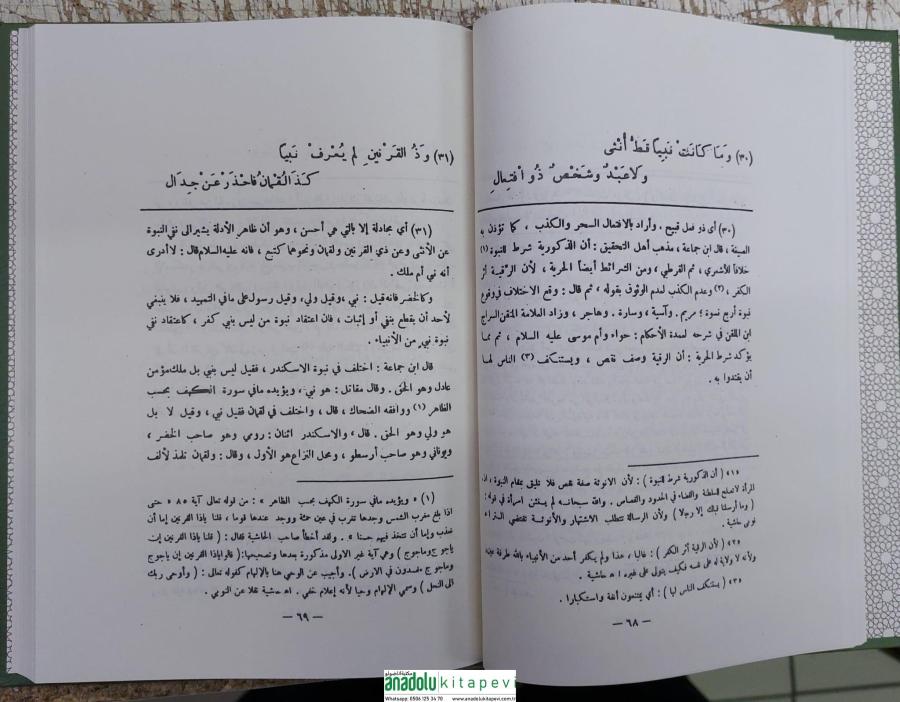 (٣٠) وَمَا كَانَتْ نَبِيًا قَطُّ أُنْثَى
وَلَا عَبْدٌ وَشَخْصٌ ذُو افْتِعَالِ
(٣٠) أى ذو فعل قبيح ، وأراد بالافتعال السحر والكذب ، كما تؤذن به
الصيغة ، قال ابن جماعة ، مذهب أهل التحقيق : أن الذكورية شرط للنبوة (١)
خلافاً للأشعري ، ثم القرطبي ، ومن الشرائط أيضاً الحرية ، لأن الرقية أثر
الكفر ، (٢) وعدم الكذب لعدم الوثوق بقوله ، ثم قال : وقع الاختلاف في وقوع
نبوة أربع نسوة ؛ مريم . وآسية ، وسارة . وهاجر ، وزاد العلامة المتقن السراج
ابن الملقن في شرحه لعمدة الأحكام : حواء وأم موسى عليه السلام ، ثم مما
يؤكد شرط الحرية : أن الرقية وصف نقص ، ويستنكف (٣) الناس لها
أن يقتدوا به .
«١» ( أن الذكورية شرط للنبوة ) : لأن الانوثة صفة نقص فلا تليق بمقام النبوة ، اذ
المرأة لا تصلح للسلطنة والقضاء في الحدود والقصاص . والله سبحانه لم يستثن امرأة في قوله :
( وما أرسلنا قبلك إلا رجالا ) ولأن الرسالة تتطلب الاشتهار والأنوثة تقتضي الستر اه
نوبى حاشية .
«٢» ( لأن الرقية أثر الكفر ) : غالبا ، هذا ولم يكفر أحد من الأنبياء بالله طرفة عين ،
ولأنه لا ولاية له على نفسه فكيف يتولى على غيره اه حاشية .
«٣» ( يستنكف الناس لها ) : أي يمتنعون أنفة واستكبارا .
— ٦٨ —
(٣١) وَذُو القَرْنَيْنِ لَمْ يُعْرَفْ نَبِيًا
كَذَا لُقْمَانُ فَاحْذَرْ عَنْ جِدَالِ
(٣١) أي مجادلة إلا بالتي هي أحسن ، وهو أن ظاهر الأدلة يشير الى نفي النبوة
عن الأنثى وعن ذي القرنين ولقمان ونحوهما كتبع ، فانه عليه السلام قال : لا أدرى
أنه نبي أم ملك .
وكالخضر فانه قيل : نبي ، وقيل ولي ، وقيل رسول على ما في التمهيد ، فلا ينبغي
لأحد أن يقطع بنفي أو إثبات ، فان اعتقاد نبوة من ليس بنبي كفر ، كاعتقاد نفي
نبوة نبي من الأنبياء .
قال ابن جماعة : اختلف في نبوة الاسكندر ، فقيل ليس بنبي بل ملك مؤمن
عادل وهو الحق . وقال مقاتل : هو نبي ، ويؤيده ما في سورة الكهف بحسب
الظاهر (١) ووافقه الضحاك ، قال ، واختلف في لقمان فقيل نبي ، وقيل لا بل
هو ولي وهو الحق . قال ، والاسكندر اثنان : رومي وهو صاحب الخضر ،
ويوناني وهو صاحب أرسطو ، ومحل النزاع هو الأول ، وقال : ولقمان تلمذ لألف
(١) « ويؤيده ما في سورة الكهف بحسب الظاهر » : من قوله تعالى آية «٨٥ حتى
اذا بلغ مغرب الشمس وجدها تغرب في عين حمئة ووجد عندها قوما ، قلنا ياذا القرنين إما أن
تعذب وإما أن تتخذ فيهم حسنا » . ولقد أخطأ صاحب الحاشية فقال : ( قلنا ياذا القرنين إن
يأجوج ومأجوج ) وهي آية غير الاولى مذكورة بعدها وتصحيحها : ( قالوا ياذا القرنين إن يأجوج
ومأجوج مفسدون في الارض ) . وأجيب عن الوحي هنا بالإلهام كقوله تعالى : ( وأوحى ربك
الى النحل ) وسمي الإلهام وحيا لأنه إعلام خفي . اه حاشية نقلا عن النوبي .
— ٦٩ —
anadolu kitapevi
Whatsapp: 0506 125 34 70 www.anadolukitapevi.com.tr